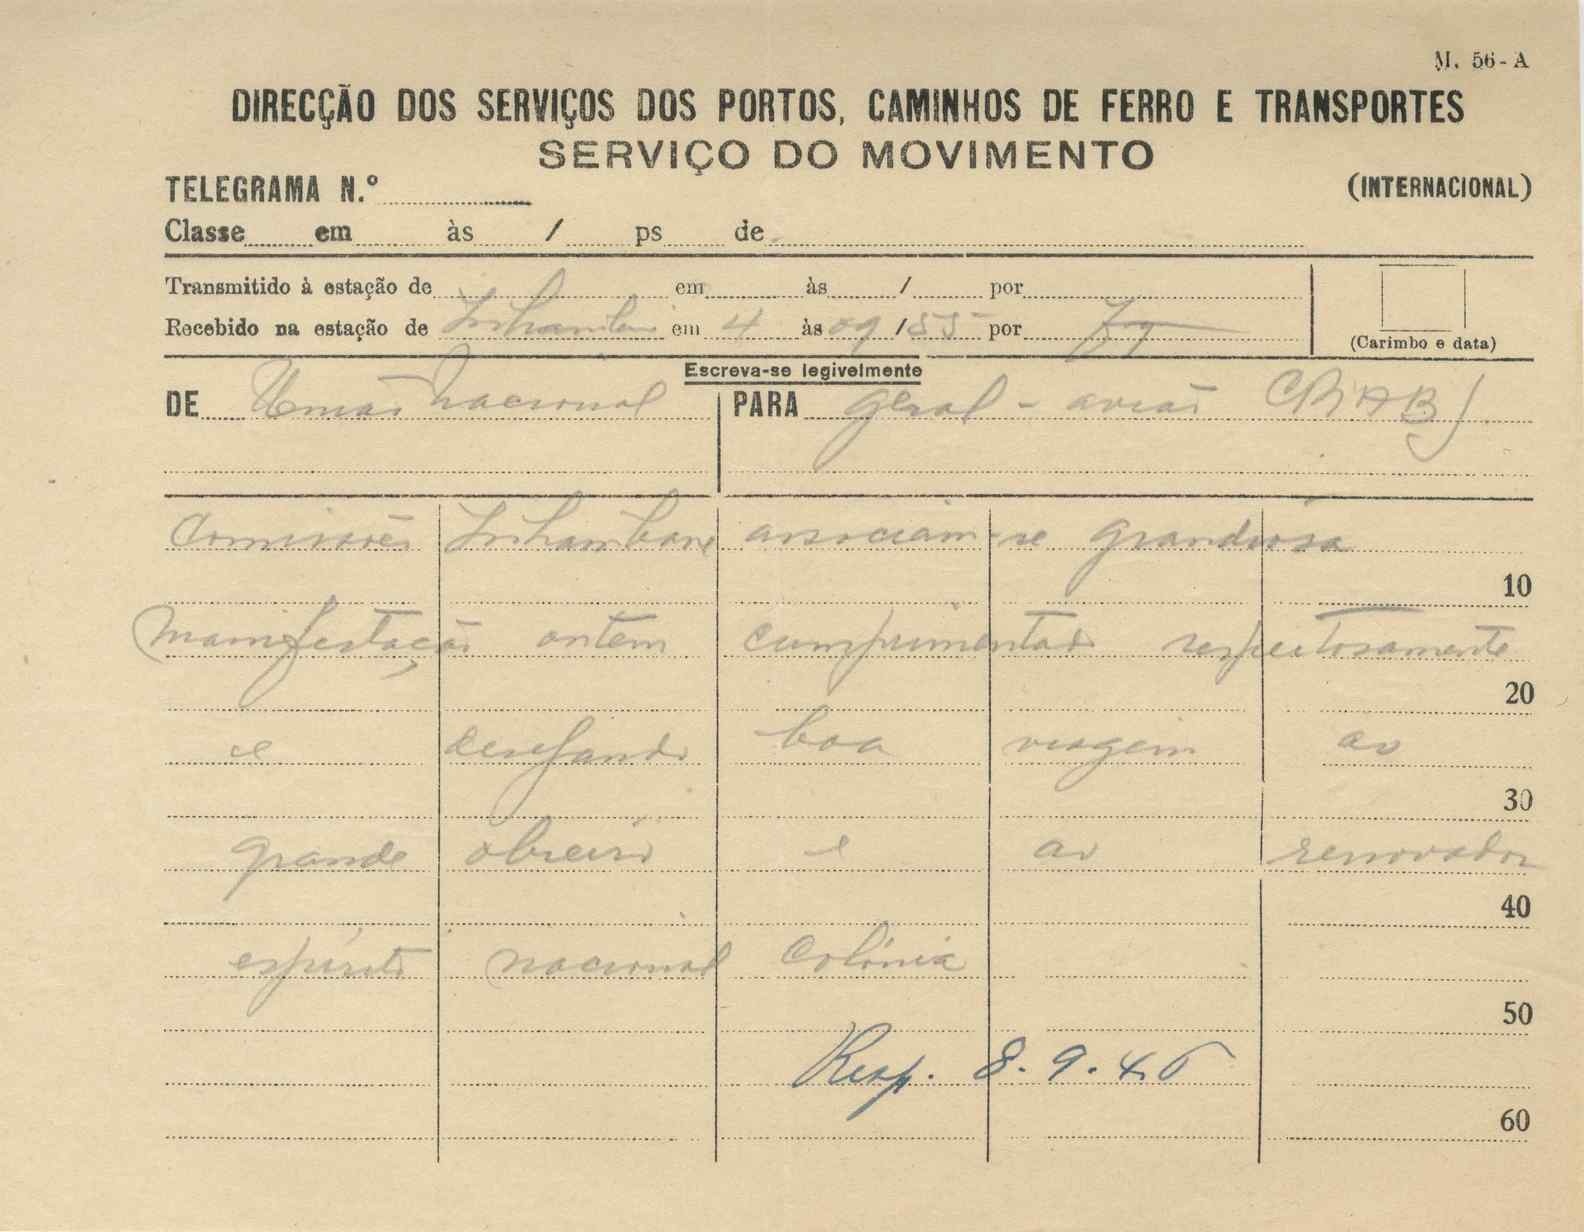 M. 56-A
DIRECÇÃO DOS SERVIÇOS DOS PORTOS, CAMINHOS DE FERRO E TRANSPORTES
SERVIÇO DO MOVIMENTO
TELEGRAMA N.º
(INTERNACIONAL)
Classe em às / ps de
Transmitido à estação de em às / por
Recebido na estação de Inhambane em 4 às 09 /55 por
(Carimbo e data)
Escreva-se legivelmente
DE União Nacional PARA Geral - avião CR ABJ
Comissões Inhambane associam-se grandiosa
10
manifestação ontem cumprimentado respeitosamente
20
e desejando boa viagem ao
30
grande obreiro e ao renovador
40
espírito nacional Colónia
50
Resp. 8.9.45
60